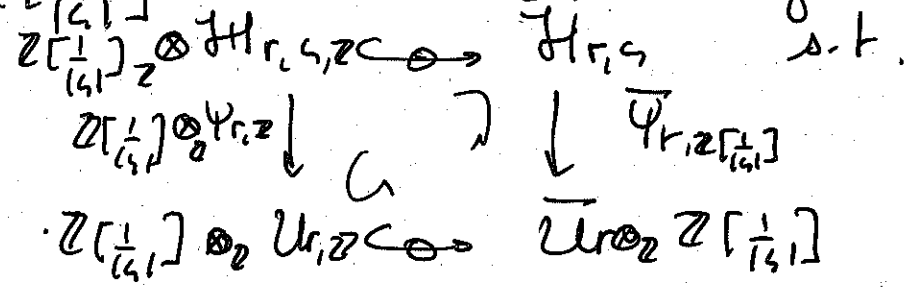 ℤ[1/|G|] ⊗_ℤ ℋ_{r,G,ℤ} ↪ \overline{ℋ}_{r,G} s.t.
ℤ[1/|G|] ⊗_ℤ Ψ_{r,ℤ} ↓ ↓ \overline{Ψ}_{r,ℤ[1/|G|]}
ℤ[1/|G|] ⊗_ℤ 𝒰_{r,ℤ} ↪ \overline{𝒰}_r ⊗_ℤ ℤ[1/|G|]